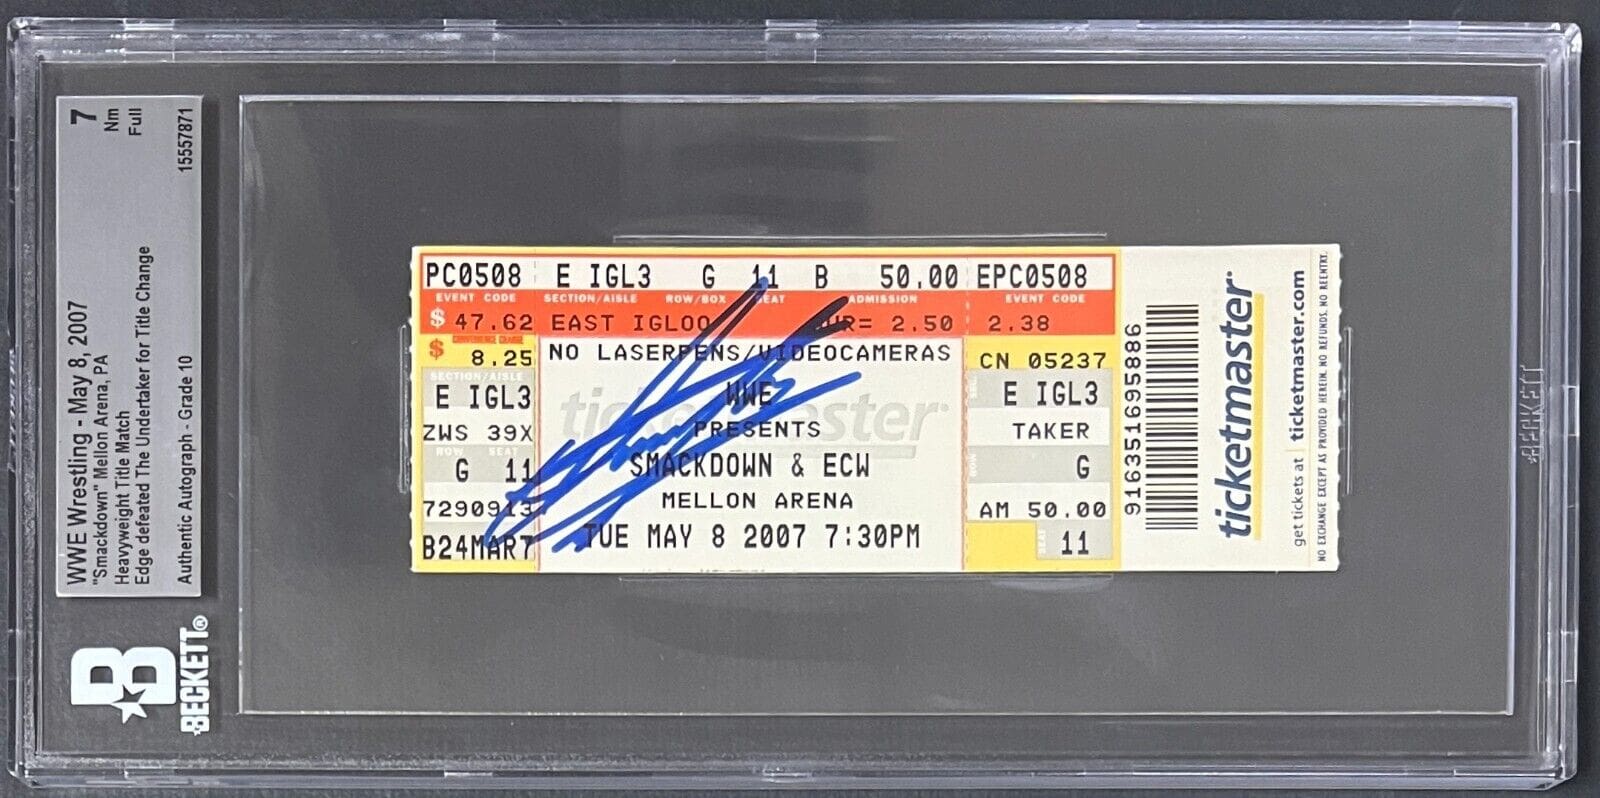 WWE Wrestling - May 8, 2007
"Smackdown" Mellon Arena, PA
Heavyweight Title Match
Edge defeated The Undertaker for Title Change
Authentic Autograph - Grade 10
7
Nm
Full
15557871
BECKETT®
PC0508 E IGL3 G 11 B 50.00 EPC0508
EVENT CODE SECTION/AISLE ROW/BOX SEAT ADMISSION EVENT CODE
$ 47.62 EAST IGLOO 2.50 2.38
CONVENIENCE CHARGE
$ 8.25 NO LASERPENS/VIDEOCAMERAS CN 05237
SECTION/AISLE
E IGL3 WWE E IGL3
ticketmaster
ZWS 39X PRESENTS TAKER
ROW SEAT
G 11 SMACKDOWN & ECW G
7290913 MELLON ARENA AM 50.00
B24MAR7 TUE MAY 8 2007 7:30PM 11
SEAT
916351695886
ticketmaster®
get tickets at ticketmaster.com
NO EXCHANGE EXCEPT AS PROVIDED HEREIN. NO REFUNDS. NO REENTRY.
BECKETT